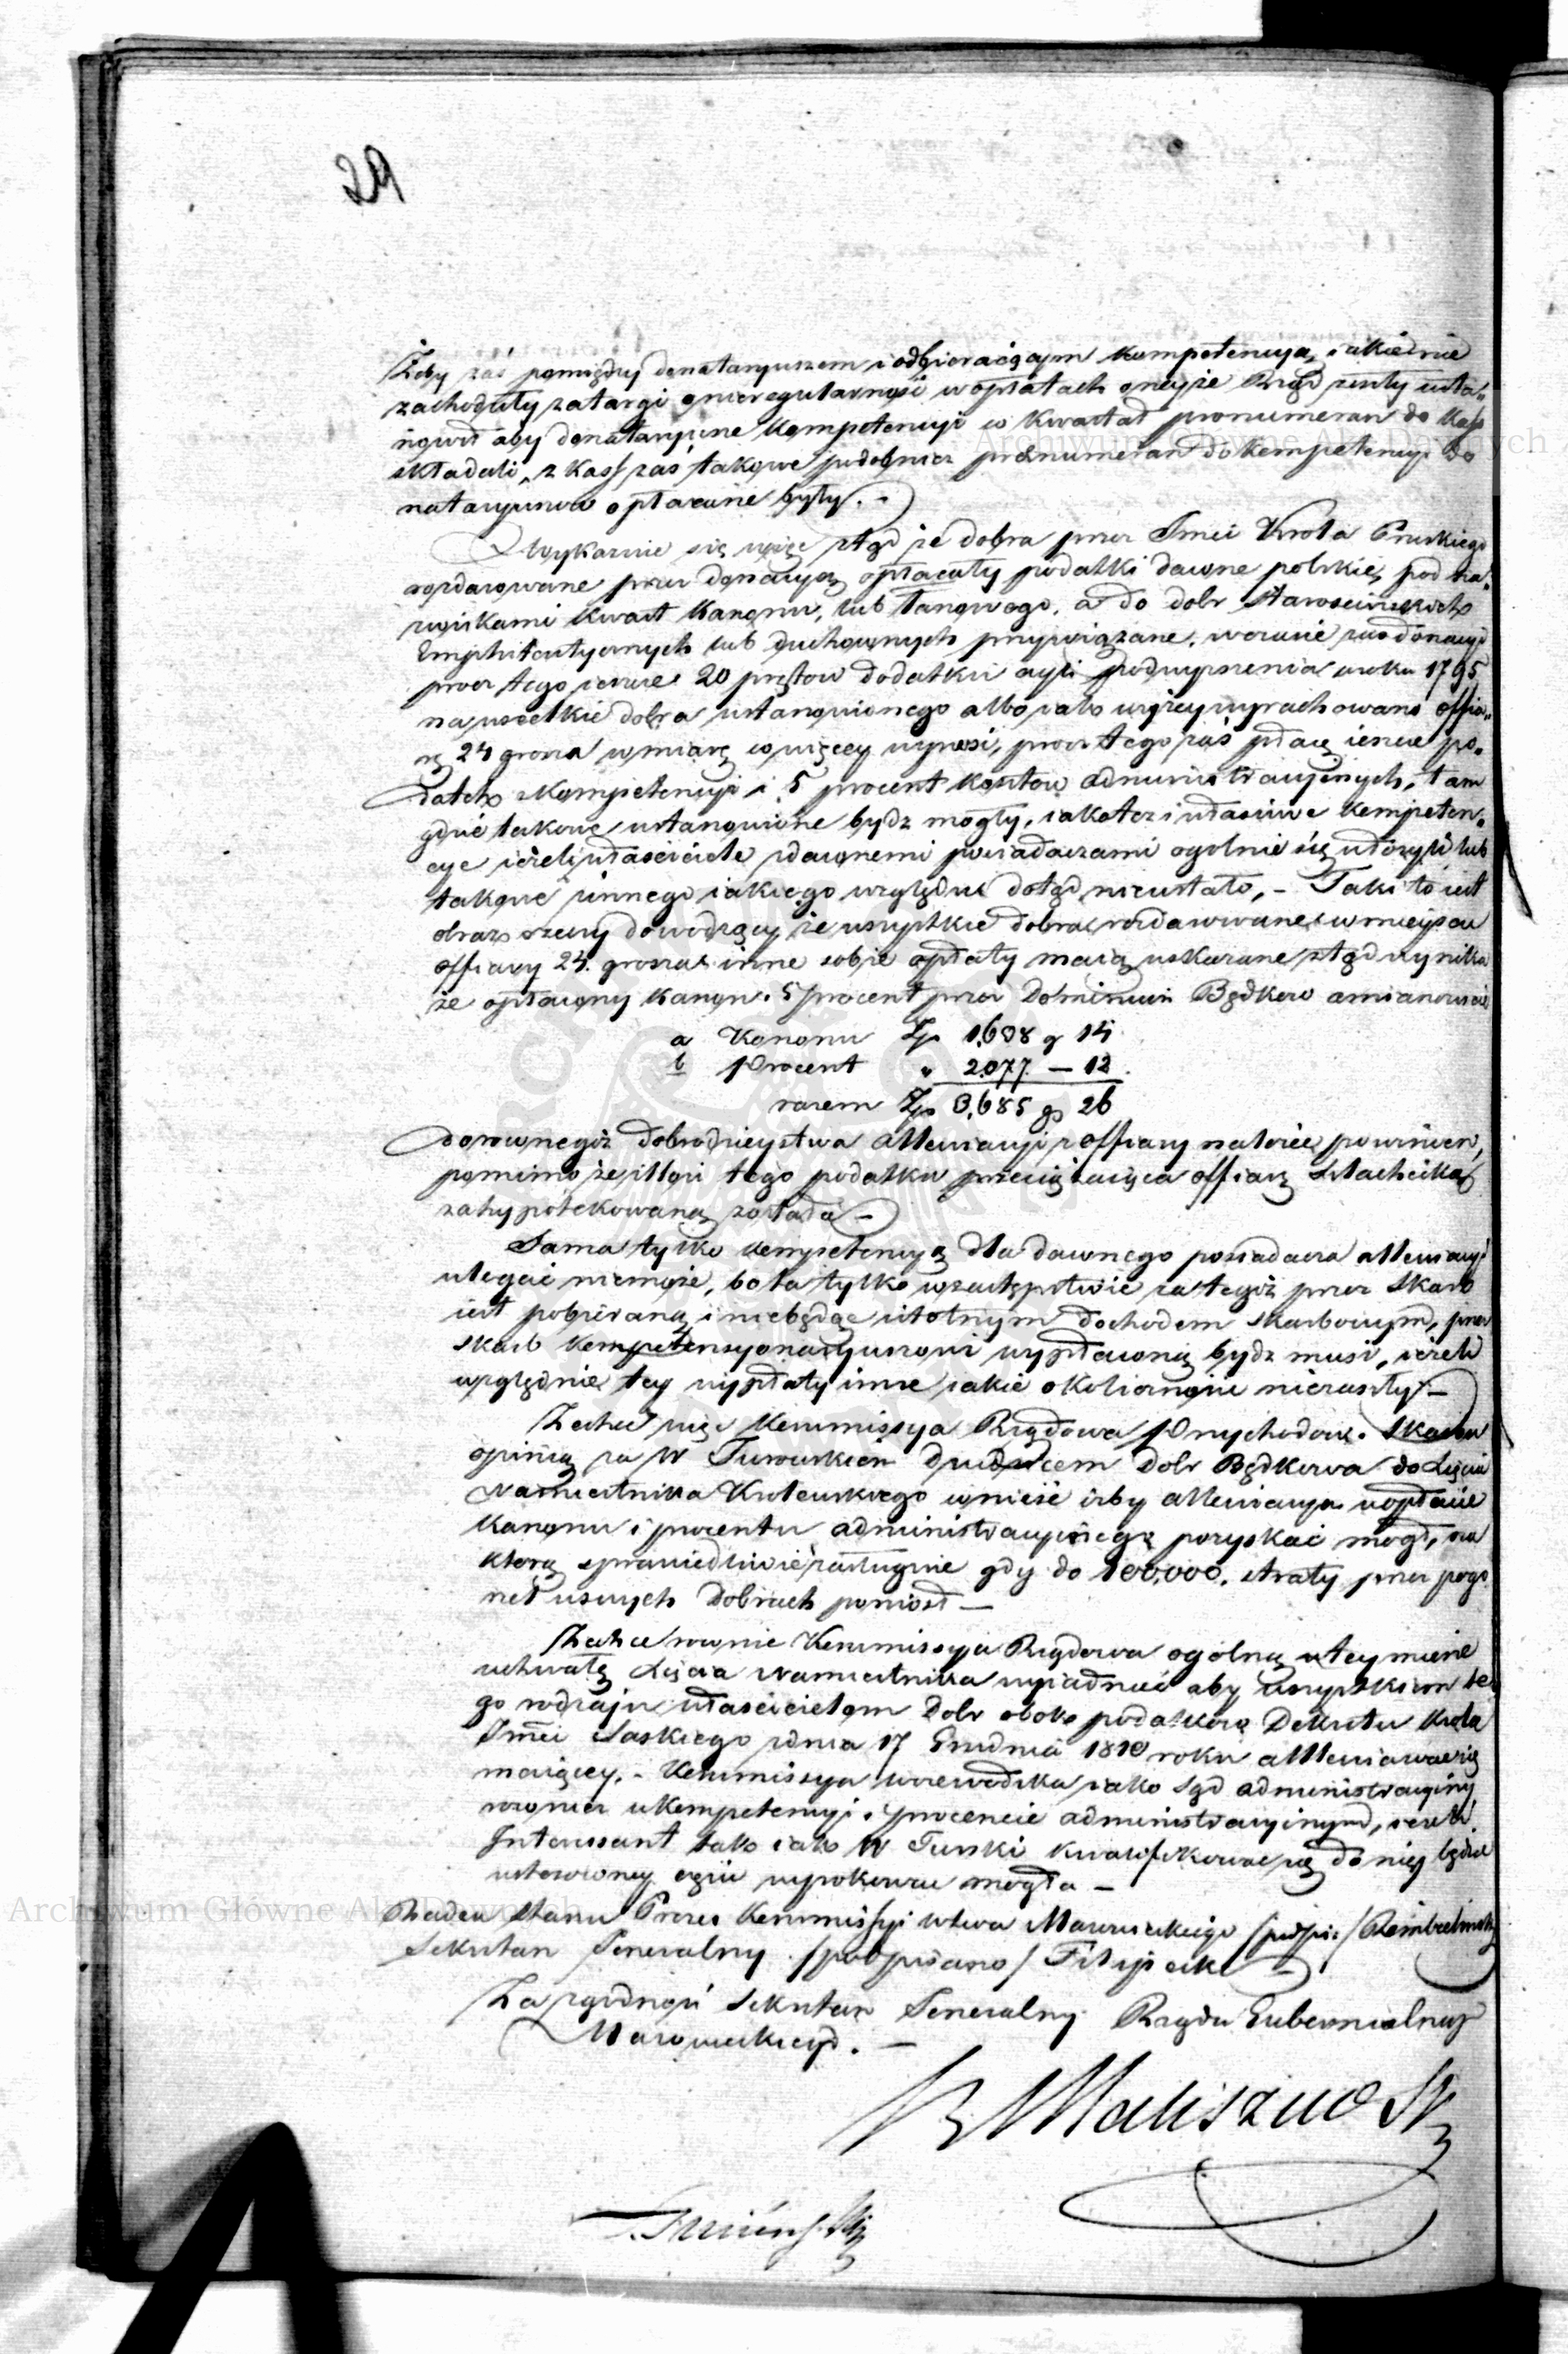 29
Żeby zaś pomiędzy donataryuszem i odbieraiącym kompetencyą, iakie nie
zachodziły zatargi o nieregularność w opłatach oneyże Rząd zeszły usta„
nowił aby donataryusze kompetencyi w kwartał pronumeran do kass
składali, z kass zaś takowe podobnież prenumeran do kompetencyi do
nataryuszów opłacane były. –
Wykazuie się więc ztąd że dobra przez Jmci Króla Pruskiego
rozdarowane przez donacyą opłacały podatki dawne polskie, pod na„
zwiskami kwart kanonu, lub łanowego, a do dobr Starościńskich
Emphiteutycznych lub duchownych przywiązane, wczasie zaś donacyi
prócz tego ieszcze 20 prętow dodatku czyli podwyższenia w roku 1795
na wszelkie dobra ustanowionego albo iako wyżey wyrachowano offia„
rę 24 grosza w miarę co więcey wynosi, prócz tego zaś płacą ieszcze po„
datek kompetencyi i 5 procent kosztow administracyinych, tam
gdzie takowe ustanowione bydz mogły, iako też i właściwe kompeten„
cye ieżeli właściciele z dawnemi posiadaczami ogolnie się ułożyli lub
takowe z innego iakiego względu dotąd nieustało, – Taki to iest
obraz rzeczy dowodzący że wszystkie dobra rozdarowane w mieyscu
offiary 24. grosza inne sobie opłaty maią wskazane ztąd wynika
że opłacony kanon i 5 procent przez Dominium Będkow a mianowicie
a Kanonu Zp 1,608 g 14
b Procent „ 2,077 – 12.
razem Zp 3,685 g 26
do rownegoż dobrodzieystwa allewiacyi z offiary należeć powinien,
pomimo że illości tego podatku przeciążaiąca offiarę Szlachecką
zahypotekowaną została –
Sama tylko kompetencyą dla dawnego posiadacza allewiacyi
ulegać niemoże, bo ta tylko w zastępstwie za tegoż przez Skarb
iest pobieraną i niebędąc istotnym dochodem skarbowym, przez
skarb kompetensyonaryuszowi wypłaconą bydz musi, ieżeli
względnie tey wypłaty inne iakie okoliczności niezaszły –
Zechce więc Kommissya Rządowa Przychodow i Skarbu
opinią za W Turowskiem Dziedzicem Dobr Będkowa do Xięcia
Namiestnika Królewskiego wnieść iżby allewiacyą w opłacie
kanonu i procentu administracyinego pozyskać mogł, na
którą sprawiedliwie zasługuie gdy do 100,000. straty przez pogo
rzel w swych Dobrach poniosł –
Zechce rownie Kommissya Rządowa ogolną w tey mierze
uchwałę Xięcia Namiestnika wyiednać aby wszystkiem te
go rodzaju właścicielom Dobr obok podatkow Dekretu Króla
Jmci Saskiego z dnia 17 Grudnia 1810 roku allewiować się
maiącey. – Kommissya woiewódzka iako Sąd administracyiny
rownież w kompetencyi i procencie administracyinym, ieżeli
Interessant tak iak W Turski kwalifikować się do niey będzie
ustosowney onęż wyrokować mogła –
Radca Stanu Prezes Kommissyi wtwa Mazowieckiego /podpis:/ Rembielinski
Sekretarz Jeneralny /podpisano/ Filipecki –
Za zgodność Sekretarz Jeneralny Rządu Gubernialnego
Mazowieckiego. –
Maliszewski